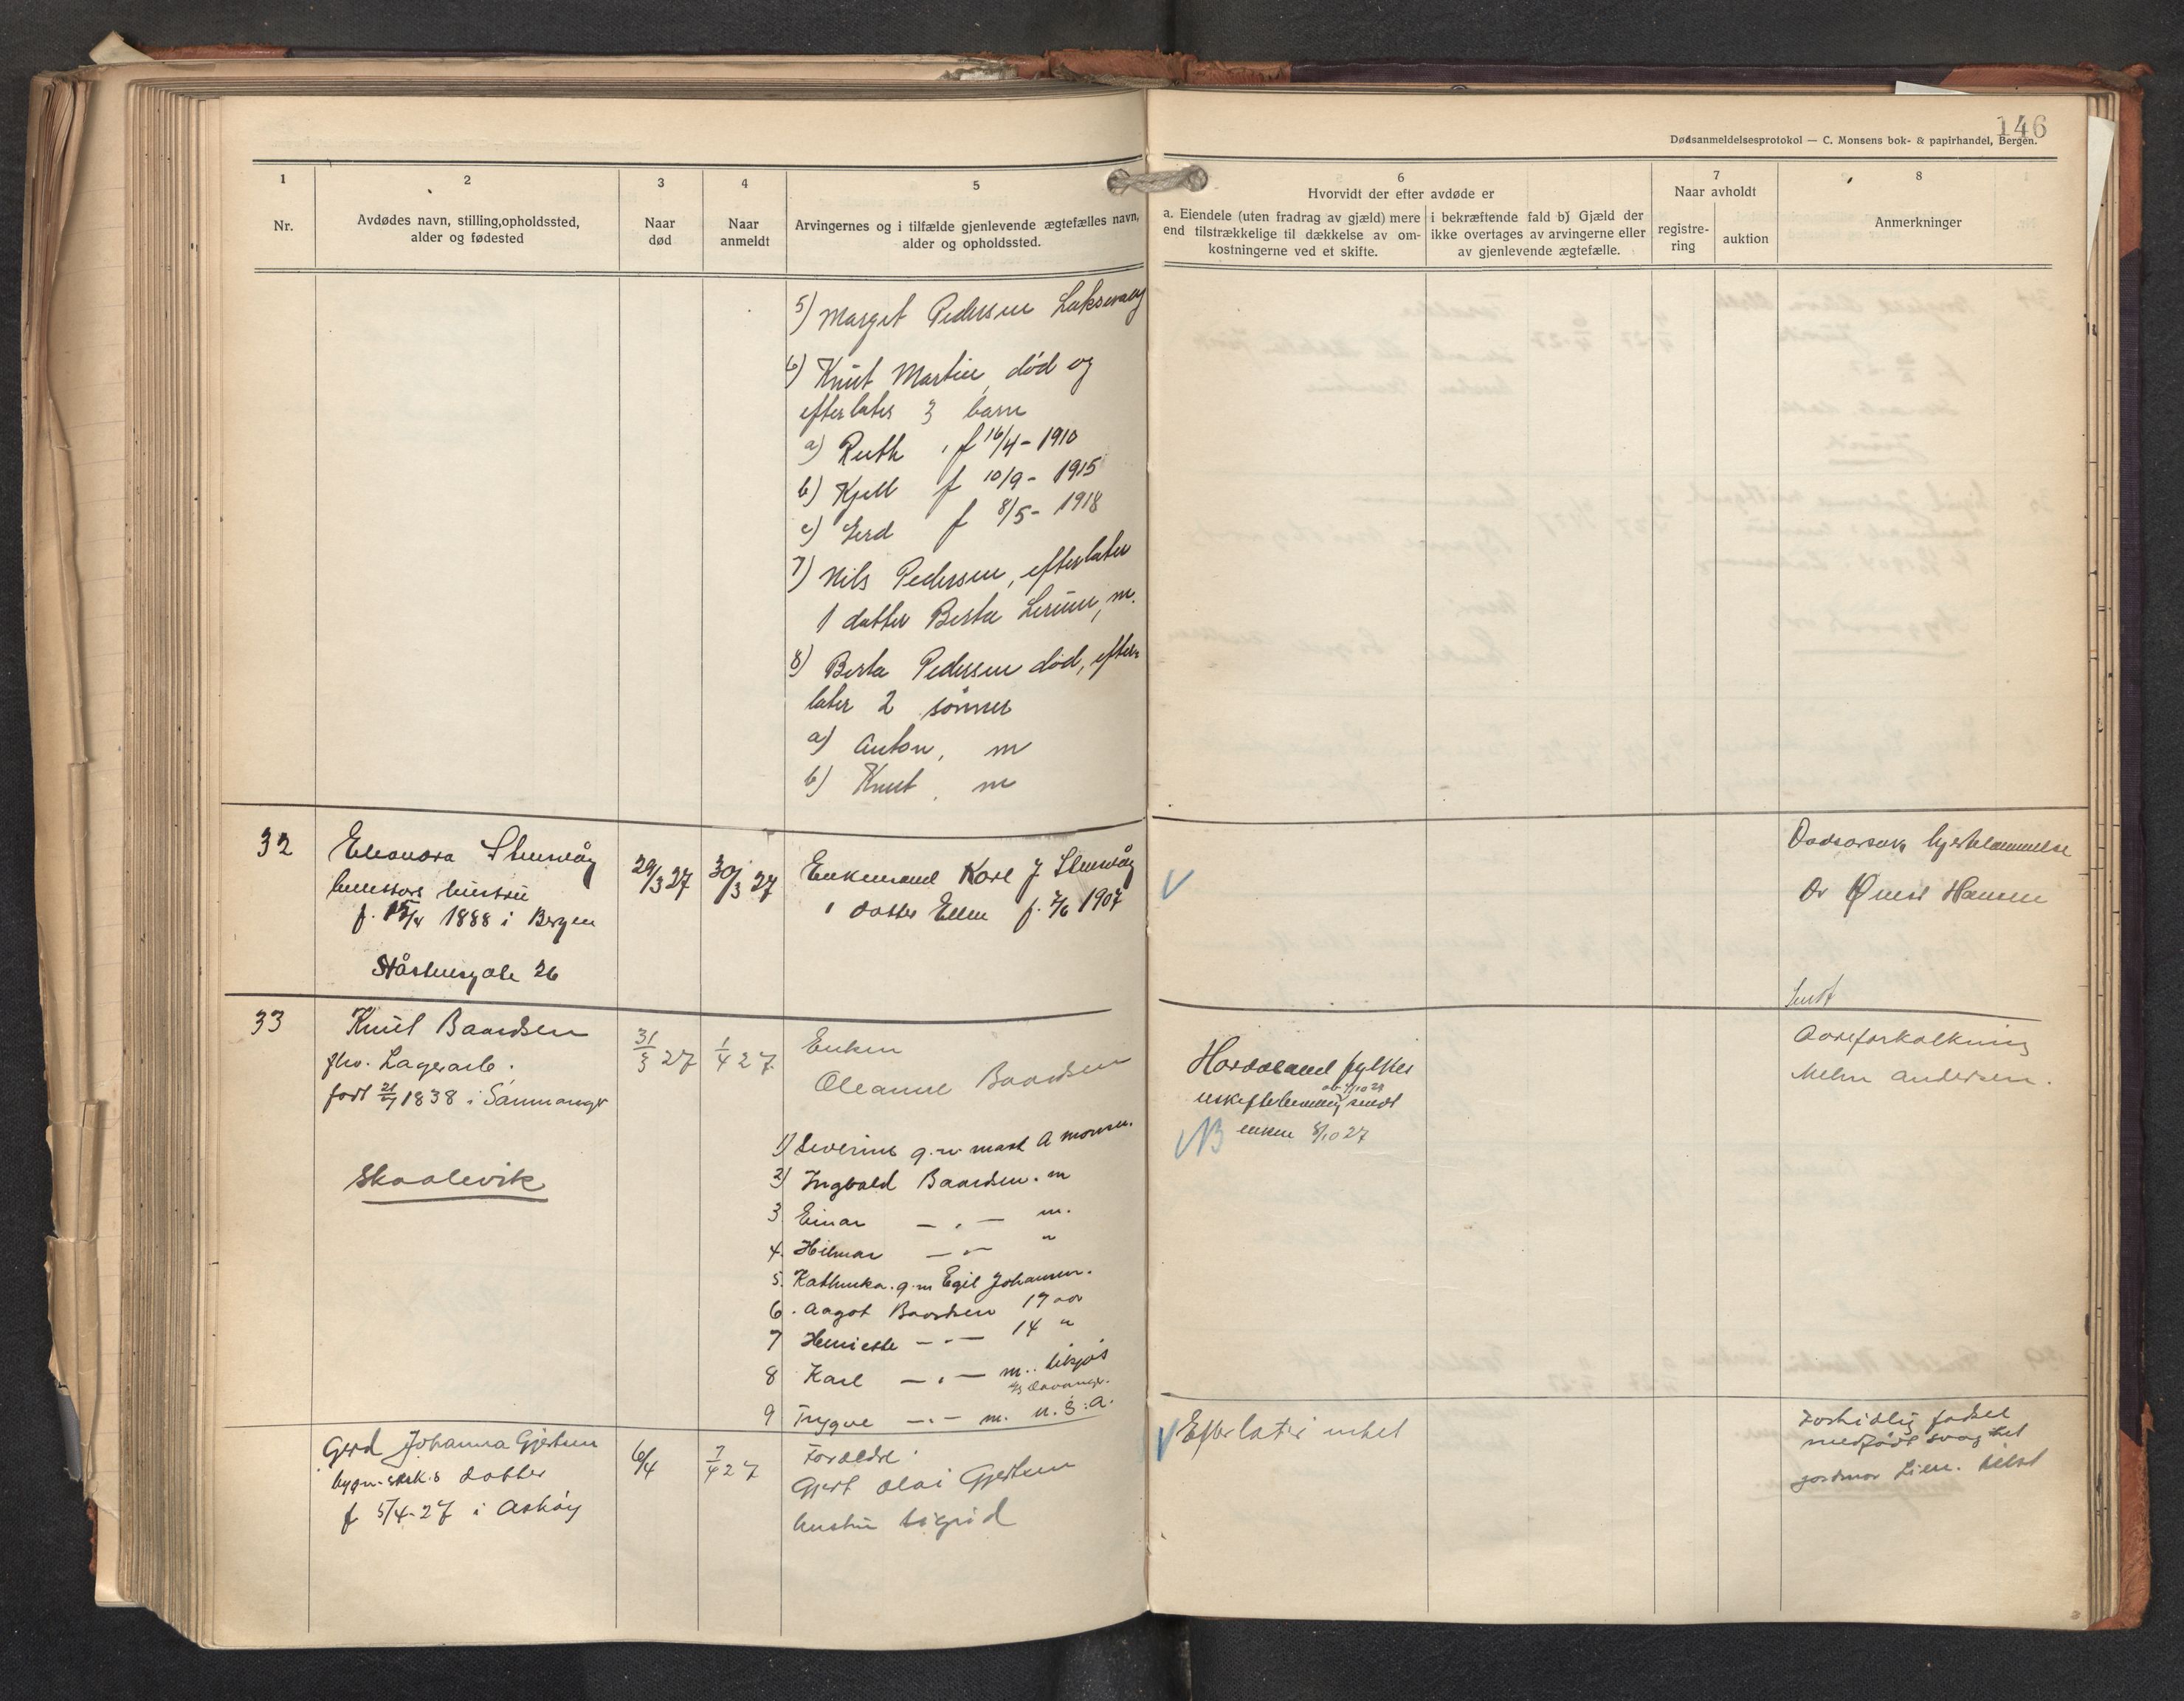 146
Dødsanmeldelsesprotokol — C. Monsens bok- & papirhandel, Bergen.
1
Nr.
2
Avdødes navn, stilling, opholdssted,
alder og fødested
3
Naar
død
4
Naar
anmeldt
5
Arvingernes og i tilfælde gjenlevende ægtefælles navn,
alder og opholdssted.
6
Hvorvidt der efter avdøde er
a. Eiendele (uten fradrag av gjæld) mere
end tilstrækkelige til dækkelse av om-
kostningerne ved et skifte.
i bekræftende fald b) Gjæld der
ikke overtages av arvingerne eller
av gjenlevende ægtefælle.
7
Naar avholdt
registre-
ring
auktion
8
Anmerkninger
5) Margit Pedersen Laksevaag
6) Knut Martin, død og
efterlater 3 barn
a) Ruth, f 16/4 - 1910
b) Kjell f 10/9 - 1915
c) Gerd f 8/5 - 1918
7) Nils Pedersen, efterlater
1 datter Berta, m.
8) Berta Pedersen død, efter-
later 2 sønner
a) Anton, m
b) Knut, m
32
Eleonora
hustru
f. 15/4 1888 i Bergen
26
29/3 27
30/3 27
Enkemand Karl J
1 datter Ellen f. 7/6 1907
Dødsårsak hjertelammelse
Dr Hansen
33
Knut Baardsen
fhv. Lagerarb.
født 21/7 1838 i Samnanger
Skaalevik
31/3 27
1/4 27
Enken
Oleanne Baardsen
1) Severine g. m. mask A Monsen.
2) Ingvald Baardsen. m
3 Einar — " — m.
4. Hilmar — " — "
5. Kathinka. g. m Egil Johansen.
6. Aagot Baardsen 17 aar
7 Henriette — " — 14 "
8 Karl — " — m. tilsjøs
9 Trygve — " — m. U. S. A.
Hordaland fylkes
uskiftebevilling sendt
enken 8/10 27
NB
Sendt
Aareforkalkning
Andersen.
Gerd Johanna Gjertsen
datter
f 5/4 - 27 i Askøy
6/4
7/4 27
Foreldre
Gjert Olai Gjertsen
hustru Sigrid
Efterlater intet
For tidlig fødsel
medfødt svaghet
jordmor Lien.